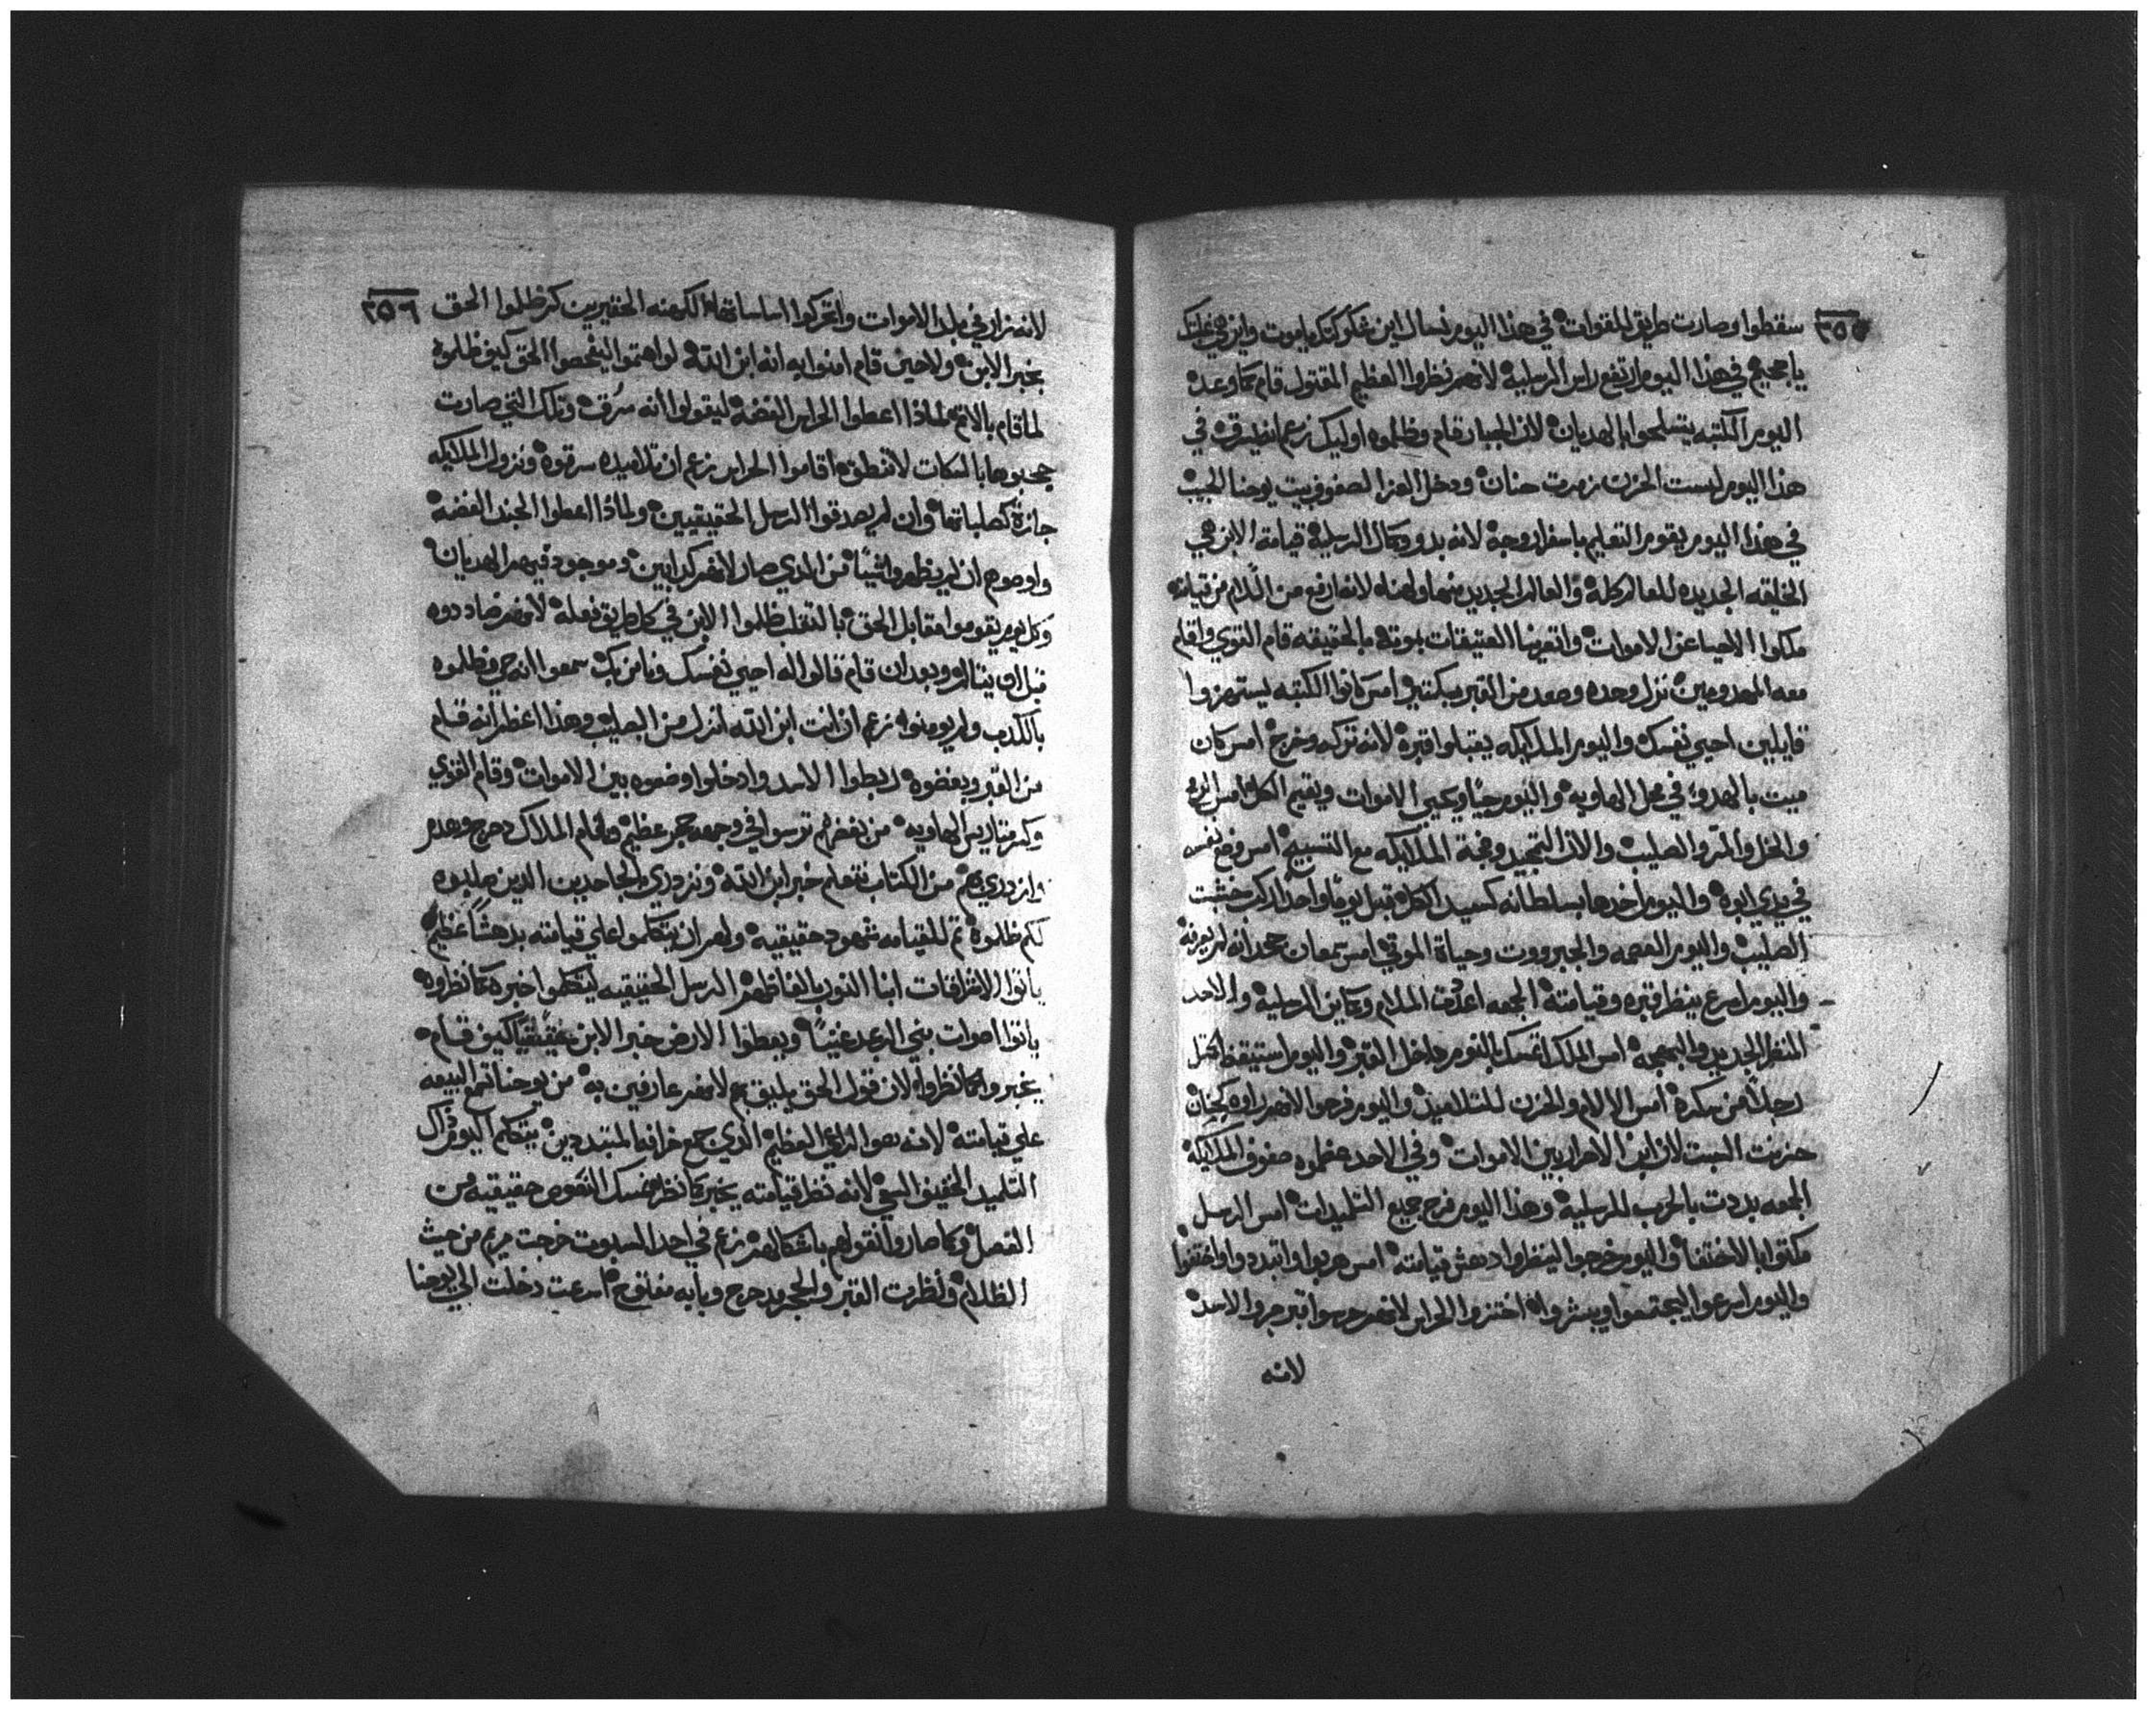 ٣٥٥
سقطوا وصارت طريق للقوات في هذا اليوم نسال اين شوكتك يا موت واين هي غلبتك
يا جحيم في هذا اليوم ارتفع راس الرسليه لانهم نظروا العظيم المقتول قام كما وعد
اليوم الكتبه يتسلحوا بالهديان لان الجبار قام وظلموه اوليك زعم انسرق في
هذا اليوم لبست الحزن زمرت حنان ودخل العزا لصفوف بيت يوحنا الحبيب
في هذا اليوم يقوم التعليم باسفار وجه لانه بدو وكمال الرسليه قيامة الابن هي
الخليقه الجديده للعالم كله والعالم الجديد منها ولهناه لانه ارفع من الالام من قيامته
ملكوا الاحيا عن الاموات وانعرنا العتيقات بموته بالحقيقه قام القوي واقام
معه المهدومين نزل وحده وصعد من القبر بكتير امس كانوا الكتبه يستهزوا
قايلين احيي نفسك واليوم الملايكه يقبلوا قبره لانه تركه وخرج امس كان
ميت بالهدو في محل الهاويه واليوم حيا ويحيي الاموات ويقيم الكل امس
والخل والمر والصليب والان التمجيد وبهجة الملايكه مع التسبيح امس وضع نفسه
في يدي ابوه واليوم اخدها بسلطانه كسيد الكل قبل يوما واحدا ركب خشبت
الصليب واليوم العصمه والجبرووت وحياة الموتي امس سمعان جحد انه لم يعرفه
واليوم اسرع ينظر قبره وقيامته الجمعه اعدت الملام وكاين الرسليه والاحد
المنظر الجديد والبهجه امس الملك اتمسك بالنوم داخل القبر واليوم استيقظ مثل
رجلا من سكره امس الالام والحزن للتلاميد واليوم فرحوا لانهم
حزنت السبت لان ابن الاحرار بين الاموات وفي الاحد عظموه صفوف الملايكه
الجمعه بددت بالحرب للرسليه وهذا اليوم فرح جميع التلميدات امس الرسل
مكتوا بالاختفا واليوم خرجوا لينظروا دهش قيامته امس هربوا واتبددوا واختفوا
واليوم اسرعوا ليجتمعوا ويبشروا اختزوا الحراس لانهم حرسوا قبر جروا الاسد
لانه
٣٥٦
لانه زار في بلد الاموات واتحركوا اساساتها الكهنه الحقيرين كم ظلموا الحق
بخبر الابن ولا حين قام امنوا به انه ابن الله لو اهتموا ليفحصوا الحق كيف ظلموه
لما قام بالاتم لماذا اعطوا الحراس الفضه ليقولوا انه سرق وتلك التي صارت
حجبوها بالسكات لا تنطق اقاموا الحراس زعم ان تلاميده سرقوه ونزول الملايكه
جازة كصلباتها وان لم يصدقوا الرسل الحقيقيين ولماذا اعطوا الجند الفضه
واوصوهم ان لم يظهروا شيا من الدي صار لانهم كدابين وموجود فيهم الهديان
وكل يوم يقوموا مقابل الحق بالتقلب ظلموا الابن في كل طريق فعله لانهم ضاددوه
قبل ان يتالم وبعد ان قام قالوا له احيي نفسك ونامن بك سمعوا انه حي وظلموه
بالكدب ولم يومنوا زعم ان انت ابن الله انزل من الصليب وهذا اعظم انه قام
من القبر ويغضوه ربطوا الاسد وادخلوا وضعوه بين الاموات وقام القوي
وكسر متاريس الهاويه من بغضهم ترسوا في وجهه حجر عظيم وقام الملاك دحرج وهدم
وازدري بهم من الكتاب نتعلم خبر ابن الله ونزدري بالجاحدين الدين صلبوه
لكم ظلموه تم للقيامه شهود حقيقيه ولهم ان يتكلموا علي قيامته بدهشا عظيم
ياتوا الافراقات ابنا النور بالفاظهم الرسل الحقيقيه ليتكلموا خبره كما نظروه
ياتوا اصوات بني الرعد غنيا ويعطوا الارض خبر الابن حقيقيا كيف قام
يخبروا كما نظروا لان قول الحق يليق بهم لانهم عارفين به من يوحنا تسمع البيعه
علي قيامته لانه هو الراعي العظيم الدي جمع خرافه المبتددين يتكلم اليوم داك
التلميد الخفيف السعي لانه نظر قيامته يخبر كما نظر نفسك القوم حقيقيه من
الفصل وكما صاروا نقولهم باشكالهم زعم في احد السبوت خرجت مريم من حيث
الظلام ونظرت القبر والحجر مدحرج وبابه مفتوح اسرعت دخلت الي يوحنا